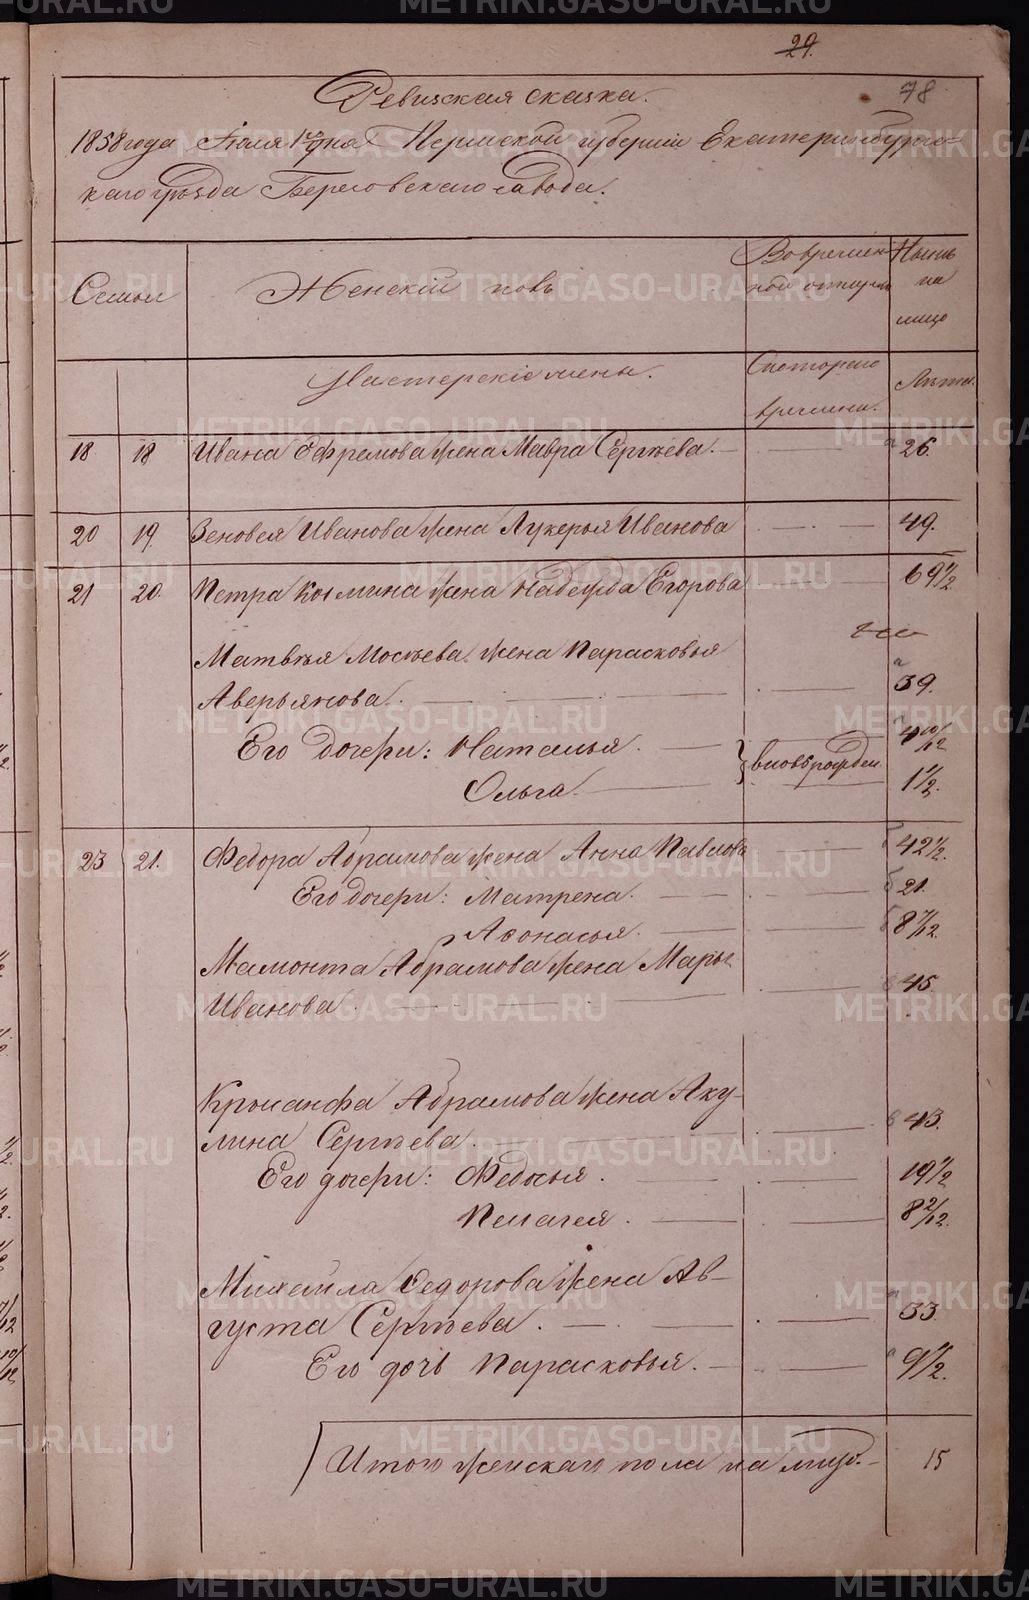 29.
78
Ревизская сказка.
1858 года Iюля 1го дня Пермской губернiи Екатеринбург-
скаго уѣзда Березовскаго завода.
Семьи
Женскiй полъ
Во времен-
ной отлучкѣ
Нынѣ
на
лицо
Мастерскiе жены.
Съ котораго
времени.
Лѣта.
18 18 Ивана Ефремова жена Мавра Сергѣева. 26.
20 19. Зеновея Иванова жена Лукерья Иванова 49.
21 20. Петра Козмина жена Надежда Егорова 69 1/2
Матвѣя Мосѣева жена Парасковья
Аверьянова. 39.
Его дочери: Наталья. 4 10/12
вновь рожден.
Ольга. 1 1/2.
23 21. Федора Абрамова жена Анна Павлова 42 1/2.
Его дочери: Матрена. 21.
Афонасья. 8 7/12.
Мамонта Абрамова жена Марья
Иванова. 45
Крисанфа Абрамова жена Аку-
лина Сергѣева. 43.
Его дочери: Федосья. 19 1/2
Пелагея. 8 2/12.
Михаила Федорова жена Ав-
густа Сергѣева. 33.
Его дочь Парасковья. 9 1/2.
Итого женскаго пола на лицо. 15
METRIKI.GASO-URAL.RU